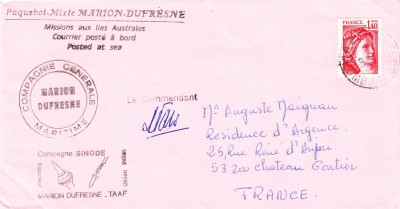 Paquebot-Mixte MARION-DUFRESNE
Missions aux îles Australes
Courrier posté à bord
Posted at sea
FRANCE
1,40
COMPAGNIE GENERALE
MARION
DUFRESNE
MARITIME
Le Commandant
Mr Auguste Maignan
Residence d'Argence
25, Rue René d'Anjou
53200 Chateau Gontier
FRANCE.
Campagne SINODE
MARION DUFRESNE TAAF